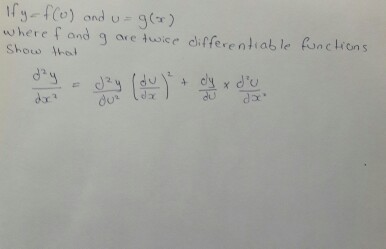 If y = f(u) and u = g(x)
where f and g are twice differentiable functions
Show that
d²y/dx² = d²y/du² (du/dx)² + dy/du × d²u/dx²